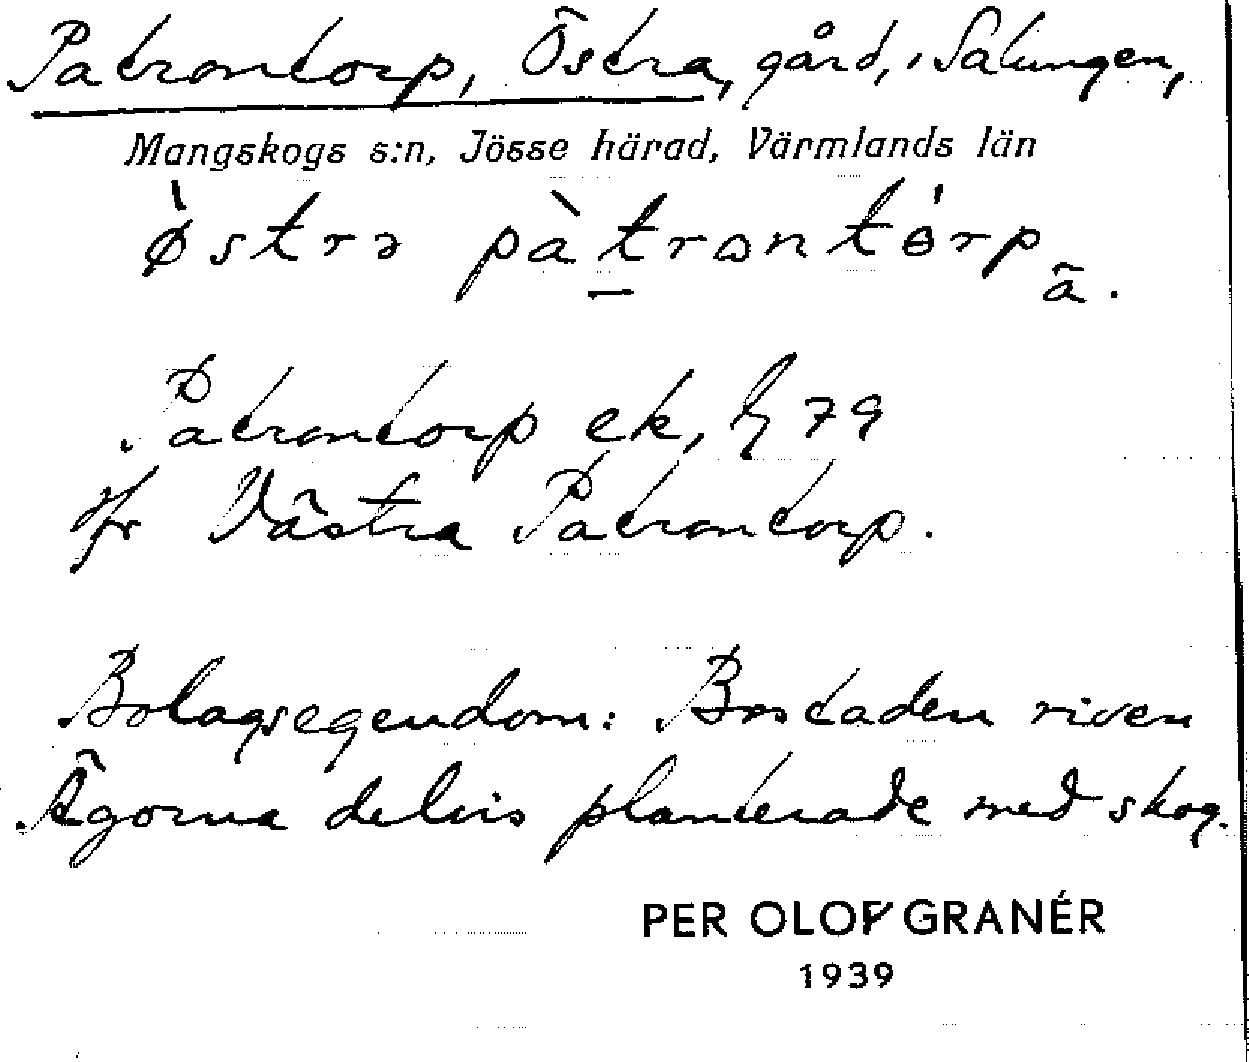 Patrontorp, Östra, gård, i Salungen,
Mangskogs s:n, Jösse härad, Värmlands län
östrə pàtrɷntɵ́rp ã.
Patrontorp ek, 79
Jfr Västra Patrontorp.
Bolagsegendom: Bostaden riven
Ägorna delvis planterade med skog.
PER OLOF GRANÉR
1939